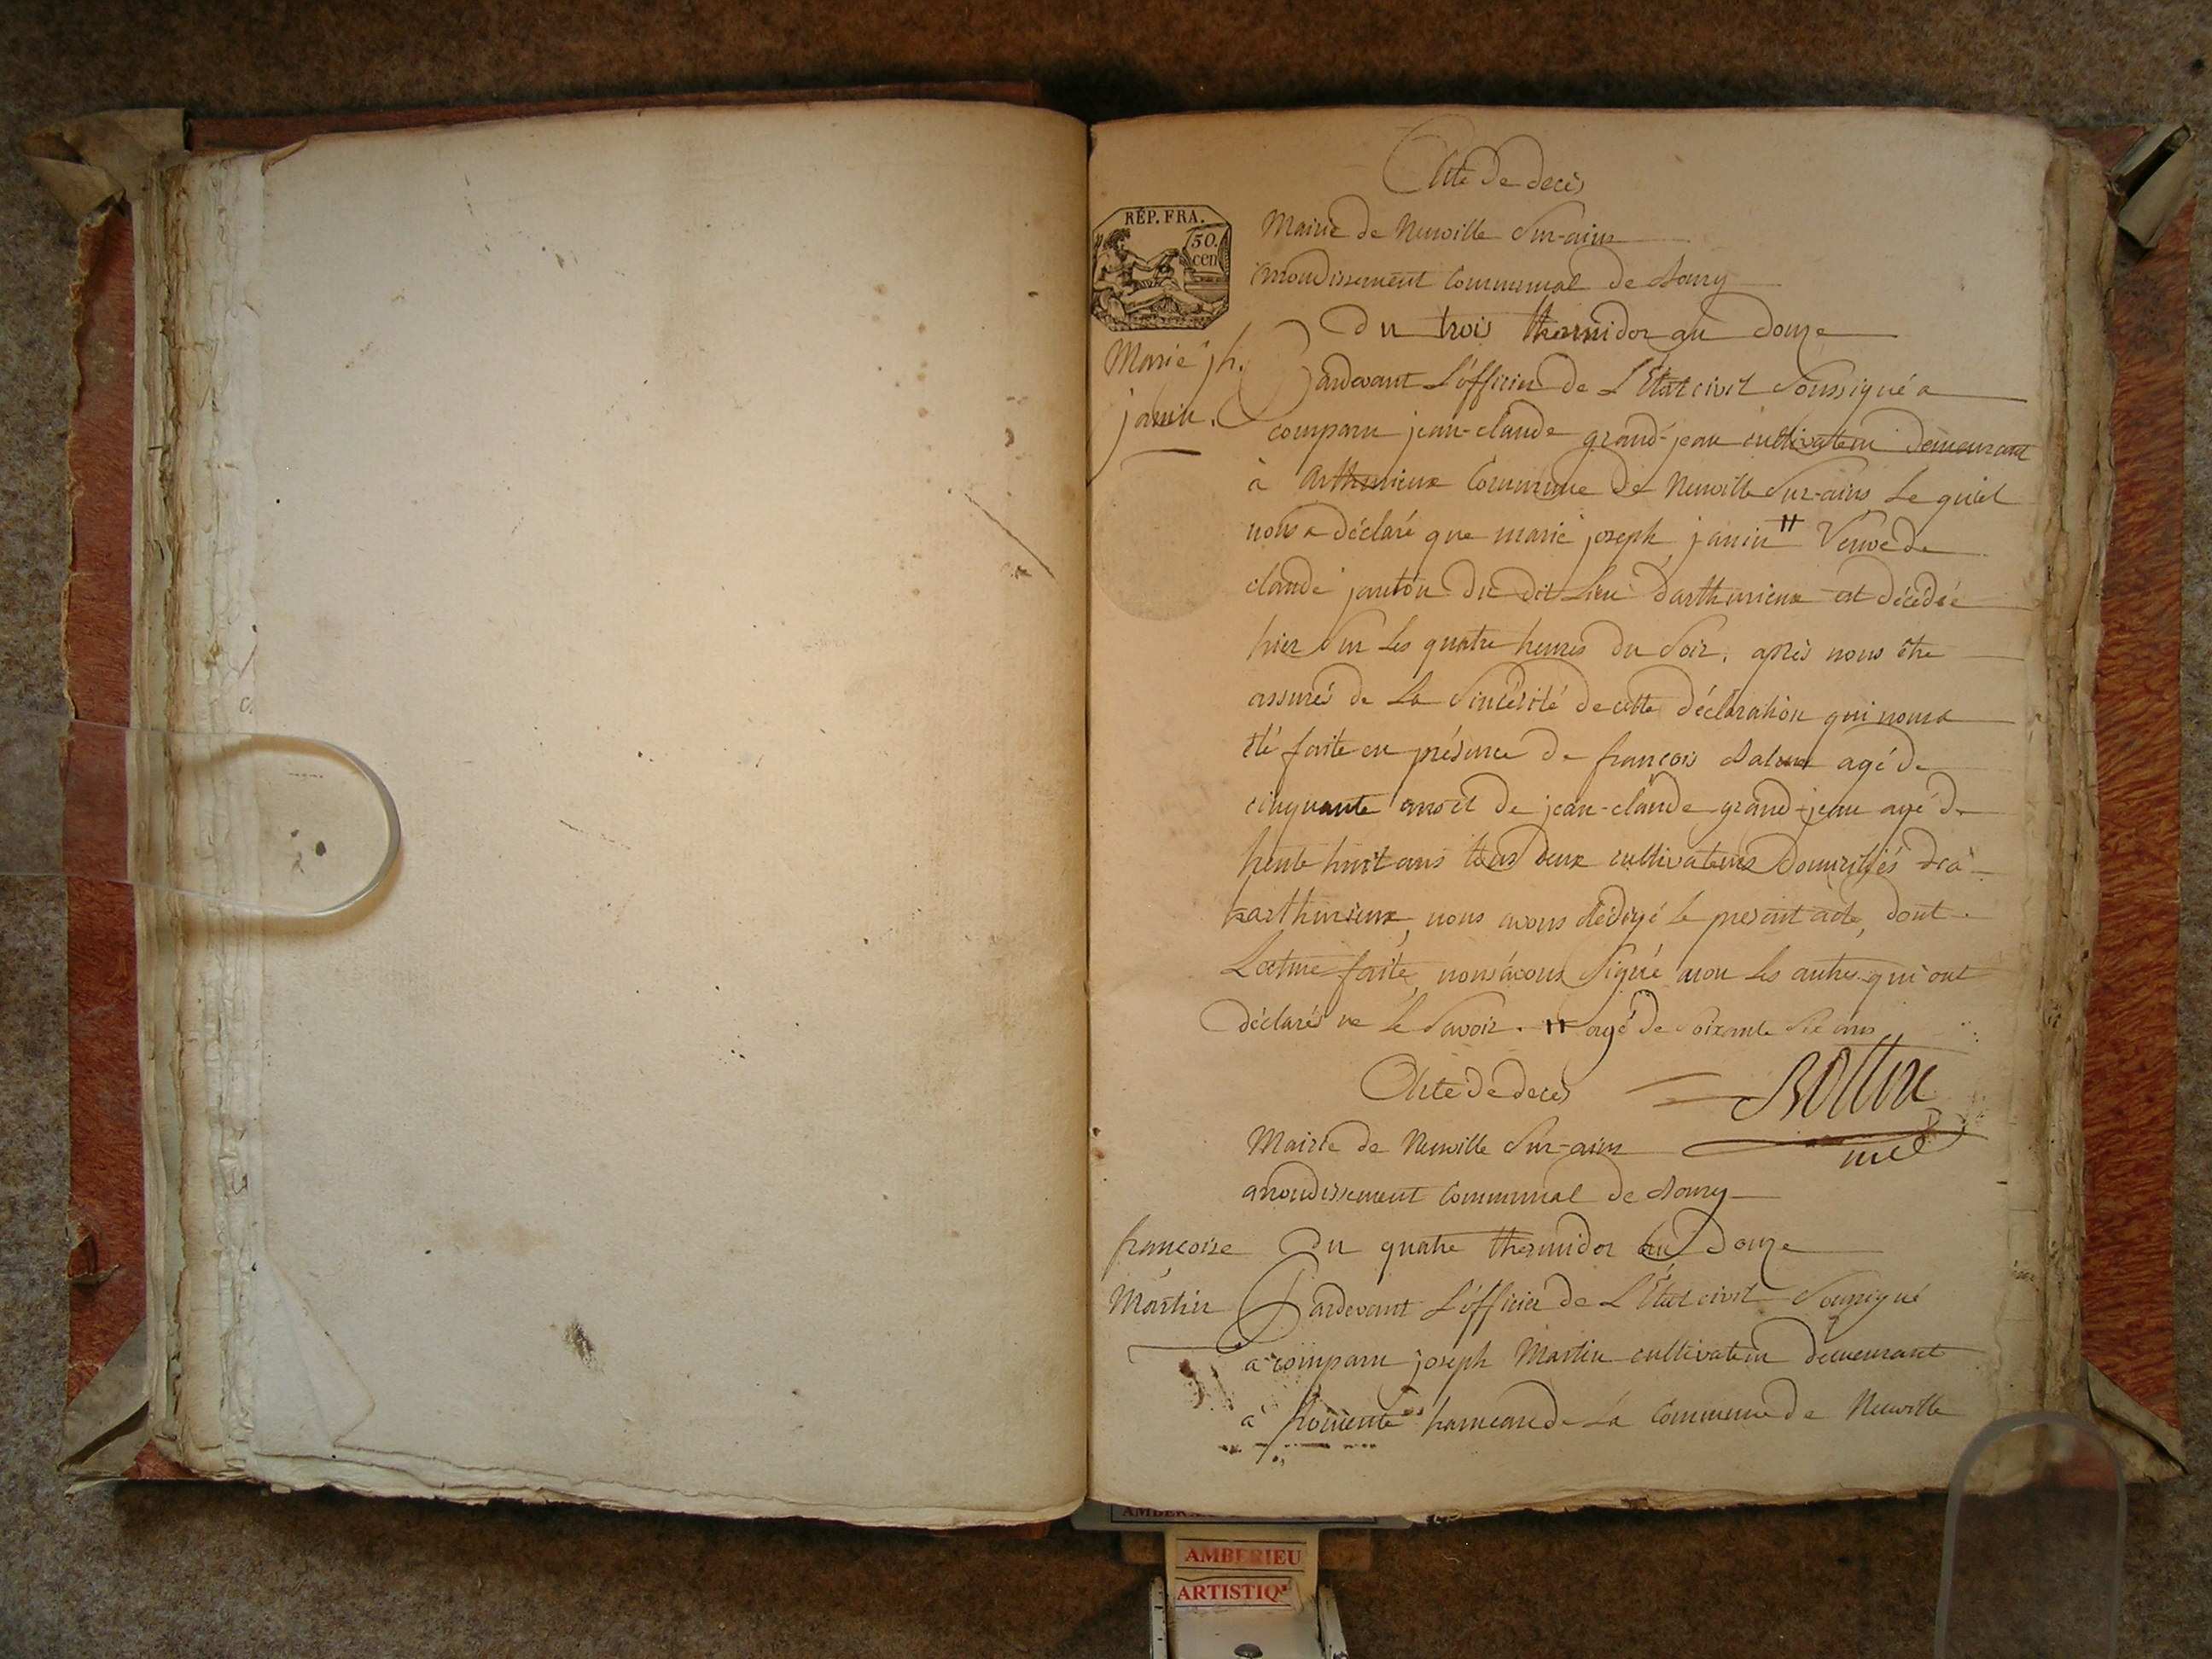 Acte de decès
RÉP. FRA.
50.
cen
Mairie de Neuville Sur-ains
arrondissement Communal de Bourg
Du trois thermidor an douze
Marie jh.
janin.
Pardevant L'officier de L'Etat civil Soussigné a
comparu jean-claude grand-jean cultivateur demeurant
à arthurieux Commune de Neuville Sur-ains Le quel
nous a déclaré que marie joseph janin # Veuve de
claude janton du dit Lieu d'arthurieux est décédée
hier Sur Les quatre heures du Soir, après nous être
assurés de La Sincérité de cette déclaration qui nous a
été faite en présence de françois agé de
cinquante ans et de jean-claude grand-jean agé de
trente huit ans tous deux cultivateurs Domiciliés
arthurieux, nous avons rédigé le present acte, dont
Lecture faite, nous avons Signé non les autres qui ont
déclarés ne le Savoir. # agé de Soixante Six ans
Acte de decès
Mairie de Neuville Sur-ains
arrondissement Communal de Bourg
françoise
Martin
Du quatre thermidor an Douze
Pardevant L'officier de L'Etat civil Soussigné
a comparu joseph Martin cultivateur demeurant
à hameau de La Commune de Neuville
AMBERIEU
ARTISTIQ